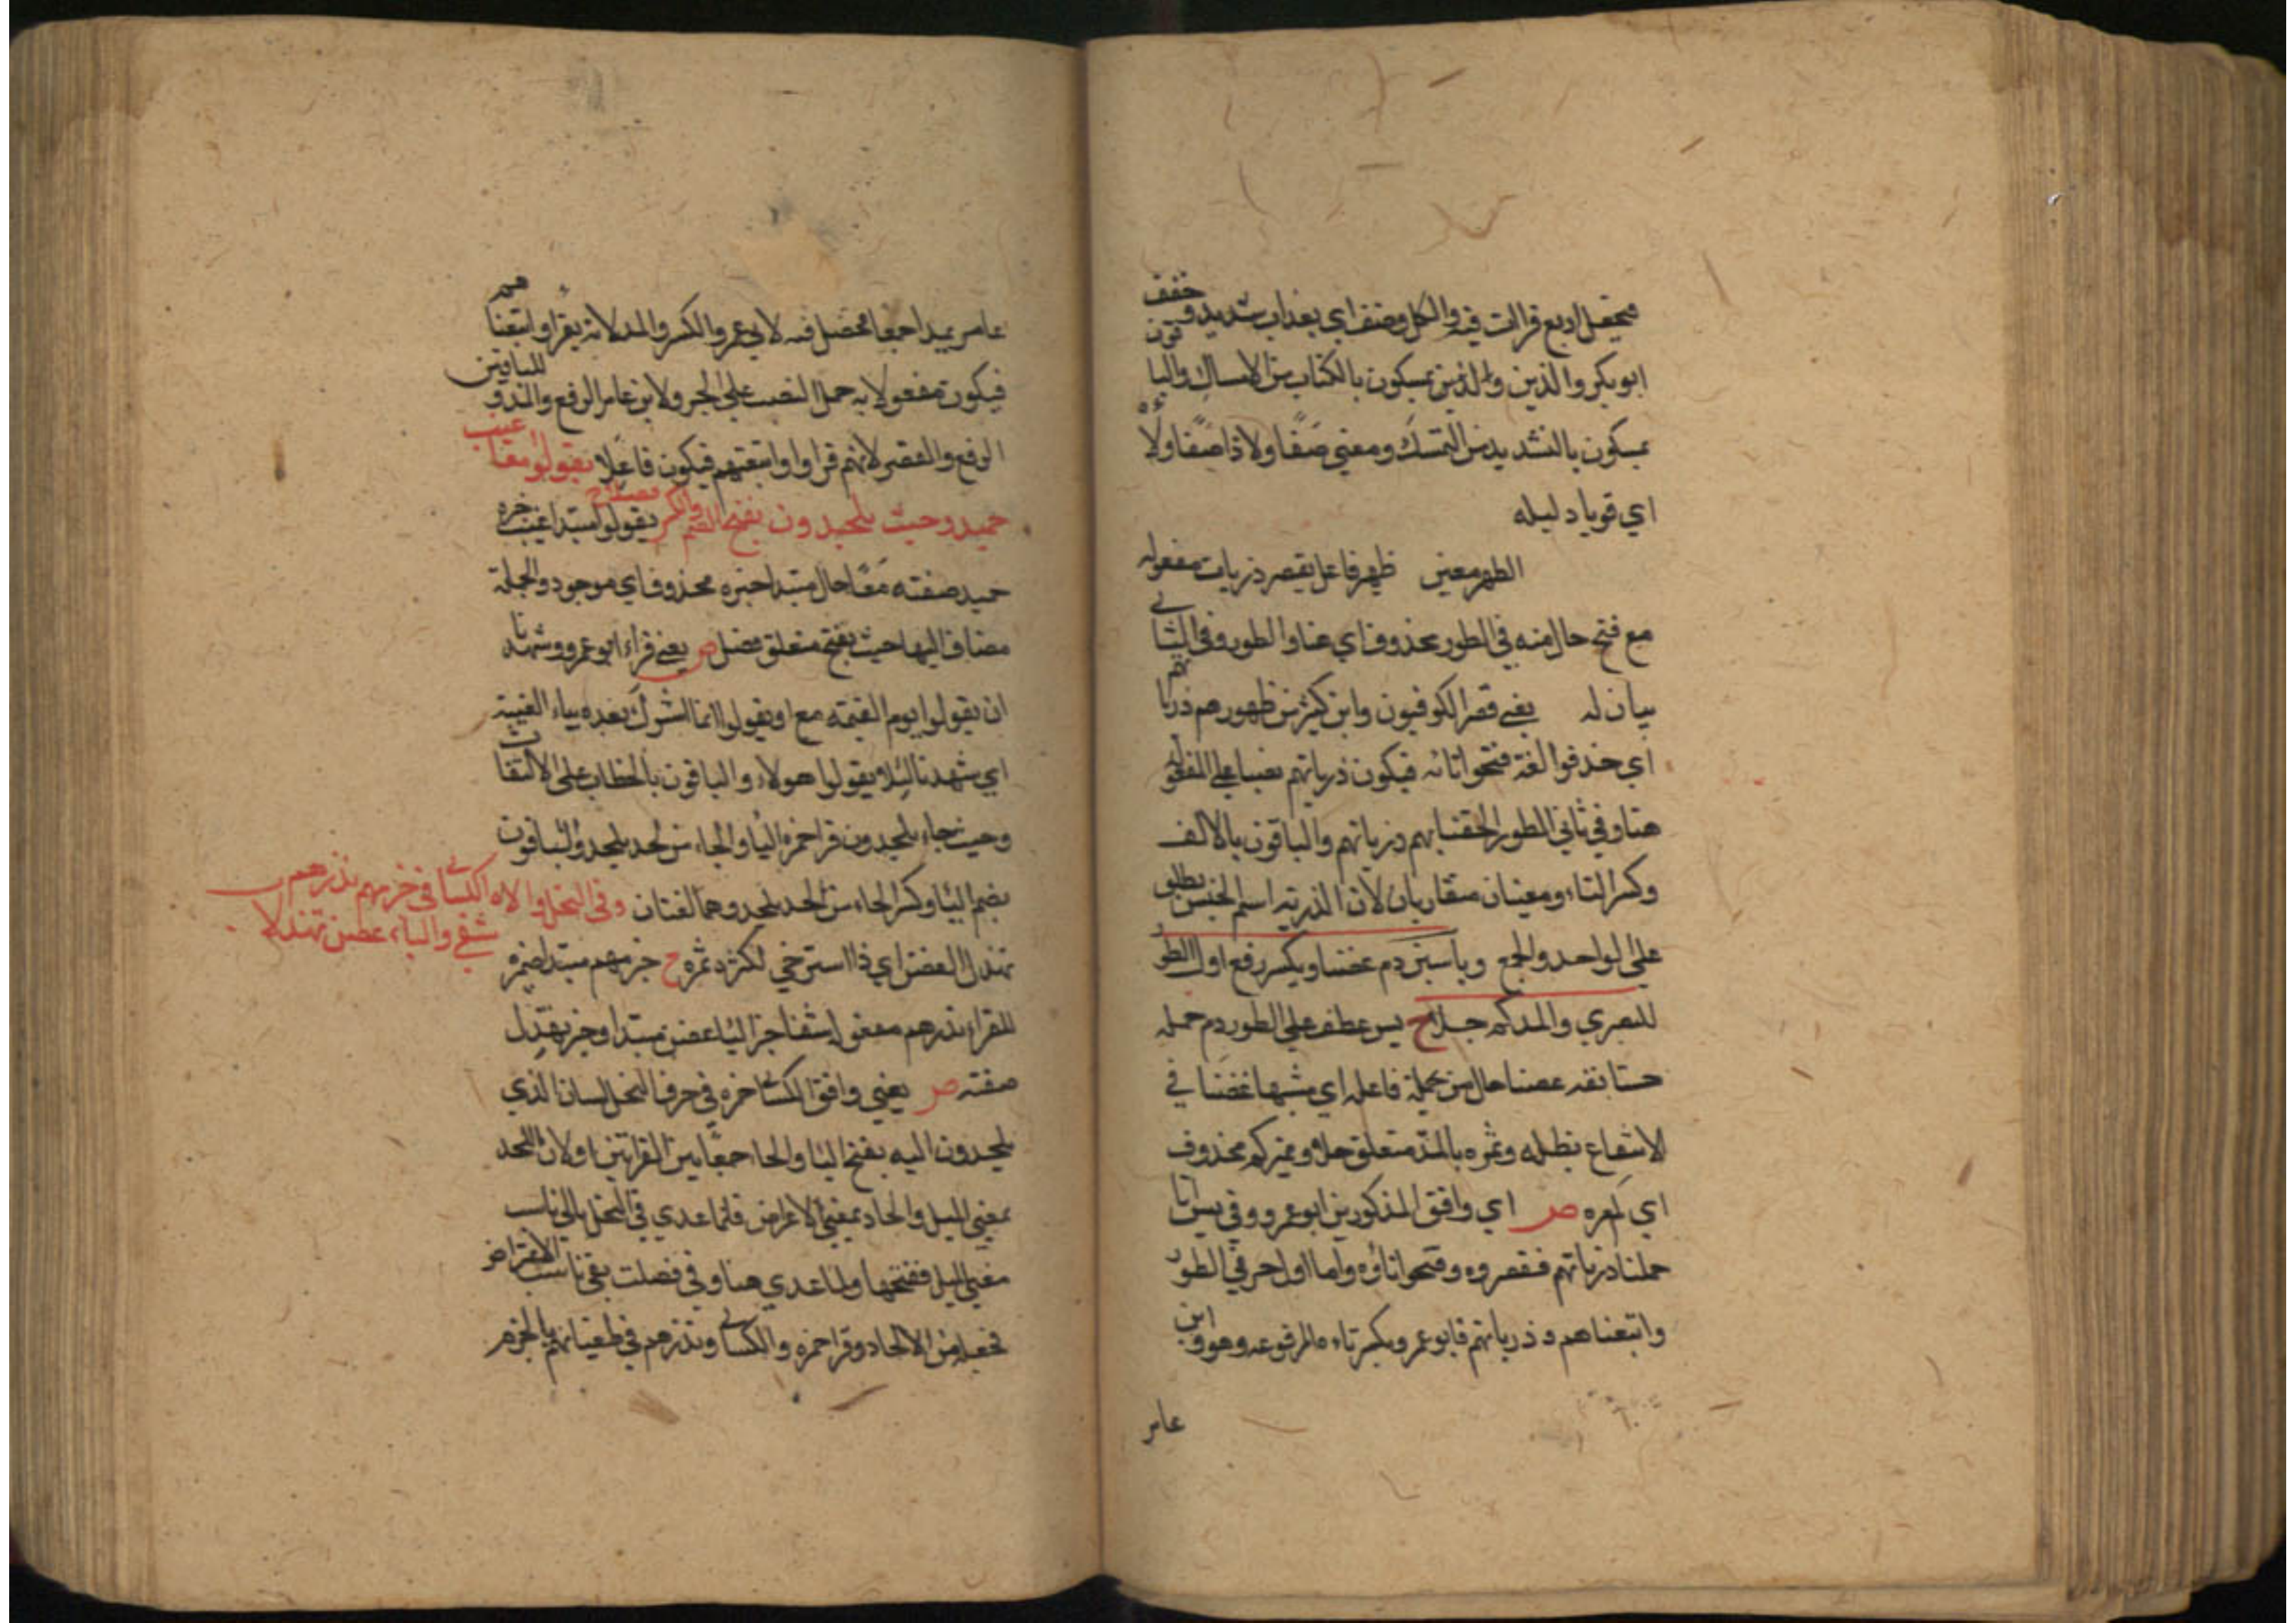 فيحصل اربع قراات فيه والكل وصف اي بعذاب شديد وخفف
ابوبكر والذين والذين يمسكون بالكتاب من الامساك والباقون
يمسكون بالتشديد من التمسك ومعني صفا ولا ذا صفا ولاءه
اي قويا دليله
ظهر فاعل يقصر ذريات مفعوله
مع فتح حال منه في الطور محذوف اي هنا والطور وفي الثاني
بيان له يعني قصر الكوفيون وابن كثير من ظهورهم ذرياتهم
اي حذفوا الفه فتحوا تائه فيكون ذرياتهم نصبا علي المفعوله
هنا وفي ثاني الطور الحقنا بهم ذرياتهم والباقون بالالف
وكسر التاء ومعنيان متقاربان لان الذريه اسم الجنس يطلق
علي الواحد والجمع وياسين دم غصنا ويكسر رفع اول الطور
للبصري والمد كم حلا ح يس عطف علي الطور دم جمله
حستانفه غصنا حال من فاعله اي مشبها غصنا في
الانتفاع بظله وثمره بالمد متعلق حلا ومميز كم محذوف
اي كم مره ص اي وافق المذكورين ابوعمرو وفي يس انا
حملنا ذرياتهم فقصروه وفتحوا تاؤه واما اول حرفي الطور
واتبعناهم و ذرياتهم فابوعمرو بكسر تاءه المرفوعه وهو وابن
عامر
عامر بمد اجمعا فحصل فيه لابي عمرو الكسر والمد لانه يقرا واتبعناهم
فيكون مفعولا به حمل النصب علي الجر ولابن عامر الرفع والمد وللباقين
الرفع والقصر لانهم قراوا واتبعتهم فيكون فاعلا يقولوا معا غيب
حميد وحيث يلحدون بفتح الضم والكسر فصلا ح يقولوا مبتدا غيب خبره
حميد صفته معا حال مبتدا خبره محذوف اي موجود والجملة
مضاف اليها حيث بفتح متعلق فصل ص يعني قراء ابوعمرو وشهدنا
ان يقولوا يوم القيمة مع او يقولوا انما اشرك بعده بياء الغيبة
اي شهدنا لئلا يقولوا هولاء والباقون بالخطاب علي الالتفات
وحيث جاء يلحدون قرا حمزه اليا والحاء من لحد يلحد والباقون
بضم اليا وكسر الحاء من الحد يلحد وهما لغتان وفي النحل والاه الكسائي وجزمهم يذرهم
شفي والياء غصن تهدلا
تهدل الغصن اي اذا استرخي لكثرة ثمره ح جزمهم مبتدا ضميره
للقراء يذرهم مفعوله شفا خبر اليا غصن مبتدا وخبر تهدل
صفته ص يعني وافق الكسائي حمزه في حرف النحل لسان الذي
يلحدون اليه بفتح اليا والحا جمعا بين القراتين او لان اللحد
بمعني الميل والالحاد بمعني الاعراض فلما عدي في النحل بالي ناسب
معني الميل ففتحها ولما عدي هنا وفي فصلت بفي ناسب الاعتراض
فجعله من الالحاد وقرا حمزه والكسائي ونذرهم في طغيانهم بالجزم